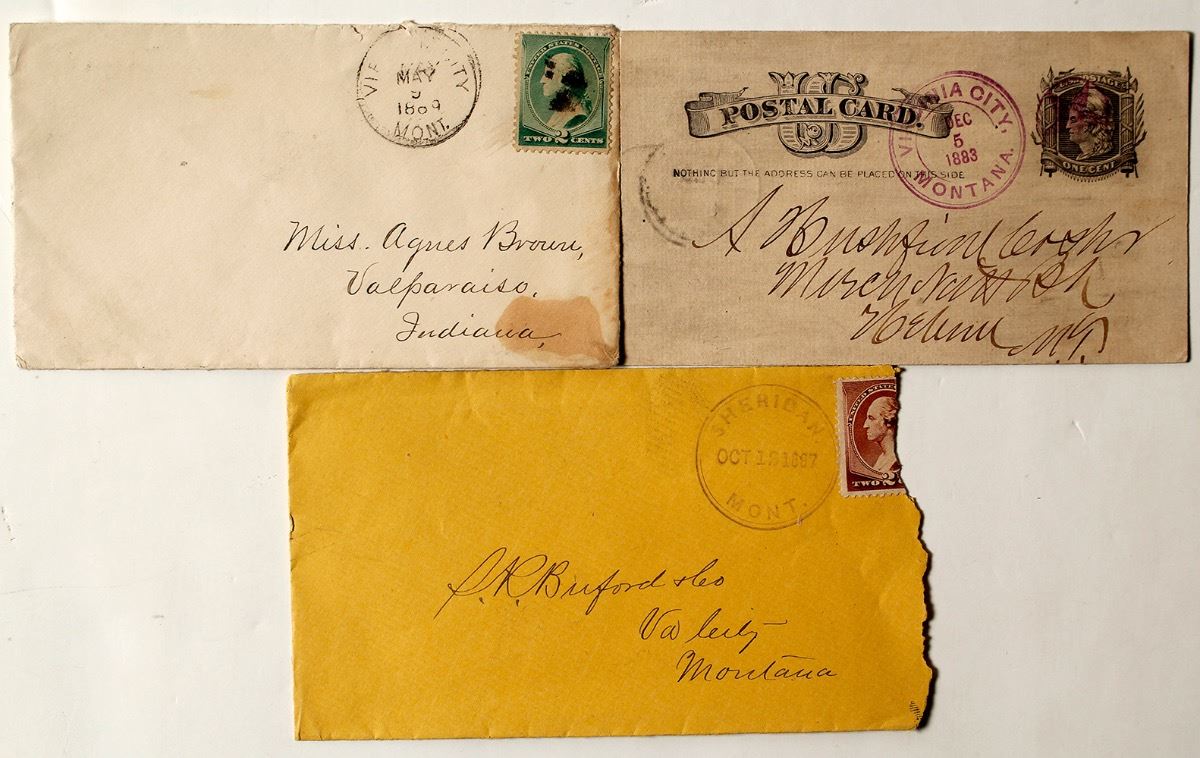 MAY
9
1889
MONT.
UNITED STATES POSTAGE
TWO 2 CENTS
Miss. Agnes Brown,
Valparaiso,
Indiana,
U S
POSTAL CARD.
NOTHING BUT THE ADDRESS CAN BE PLACED ON THIS SIDE
VIRGINIA CITY,
DEC
5
1883
MONTANA.
POSTAGE
ONE CENT
A
Helena M.T.
SHERIDAN,
OCT 12 1887
MONT.
UNITED STATES
TWO 2
S. R. Buford & Co
Va City
Montana